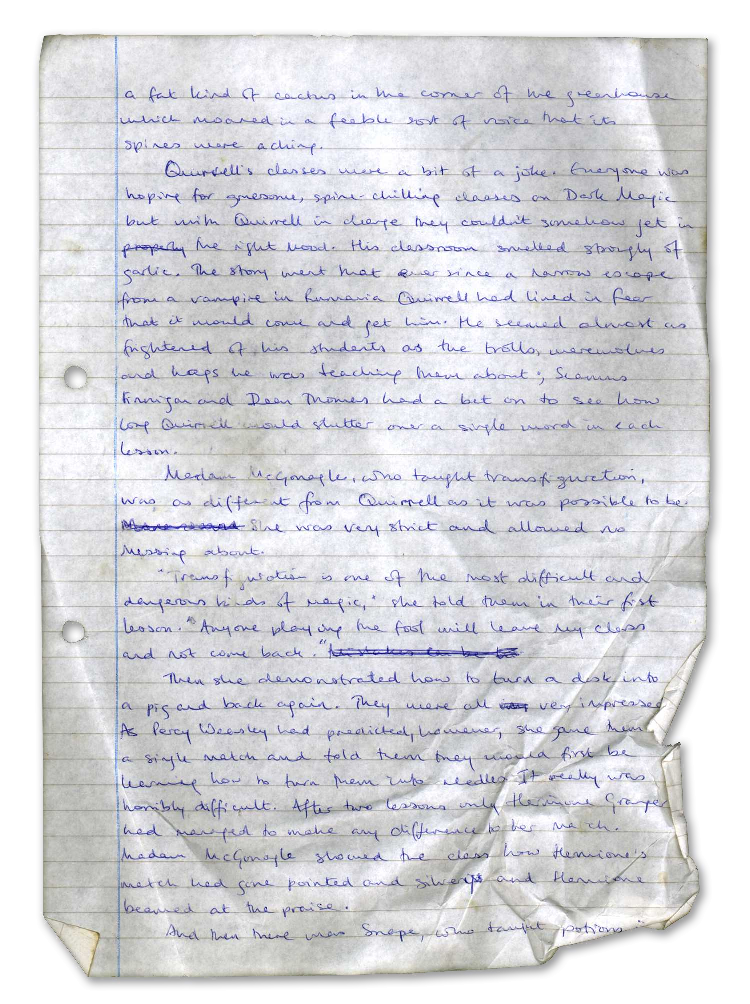 a fat kind of cactus in the corner of the greenhouse
which moaned in a feeble sort of voice that its
spines were aching.
Quirrell's classes were a bit of a joke. Everyone was
hoping for gruesome, spine-chilling classes on Dark Magic
but with Quirrell in charge they couldn't somehow get in
properly the right mood. His classroom smelled strongly of
garlic. The story went that ever since a narrow escape
from a vampire in Rumania Quirrell had lived in fear
that it would come and get him. He seemed almost as
frightened of his students as the trolls, werewolves
and hags he was teaching them about; Seamus
Finnigan and Dean Thomas had a bet on to see how
long Quirrell would stutter over a single word in each
lesson.
Madam McGonagle, who taught transfiguration,
was as different from Quirrell as it was possible to be.
She was very strict and allowed no
messing about.
"Transfiguration is one of the most difficult and
dangerous kinds of magic," she told them in their first
lesson. "Anyone playing the fool will leave my class
and not come back."
Then she demonstrated how to turn a desk into
a pig and back again. They were all very impressed
As Percy Weasley had predicted, however, she gave them
a single match and told them they would first be
learning how to turn them into needles. It really was
horribly difficult. After two lessons only Hermione Granger
had managed to make any difference to her match.
Madam McGonagle showed the class how Hermione's
match had gone pointed and silvery and Hermione
beamed at the praise.
And then there was Snape, who taught potions